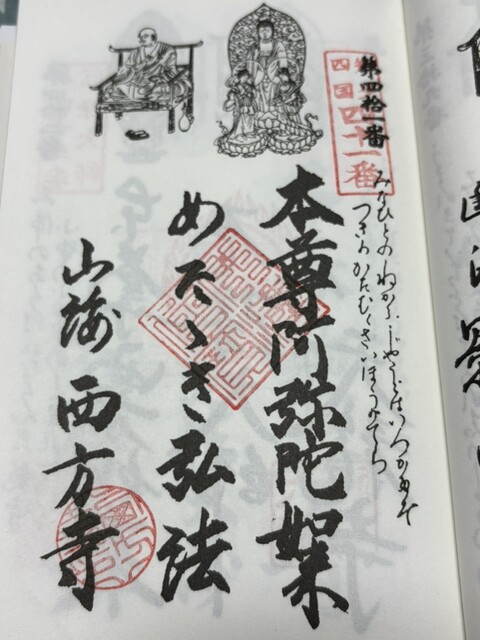 第四拾一番
四国四十一番
みなひとの ねかふじやうどはいつかたぞ
つきのかたむくさいほうのてら
本尊阿弥陀如来
めたゝき弘法
山海 西方寺